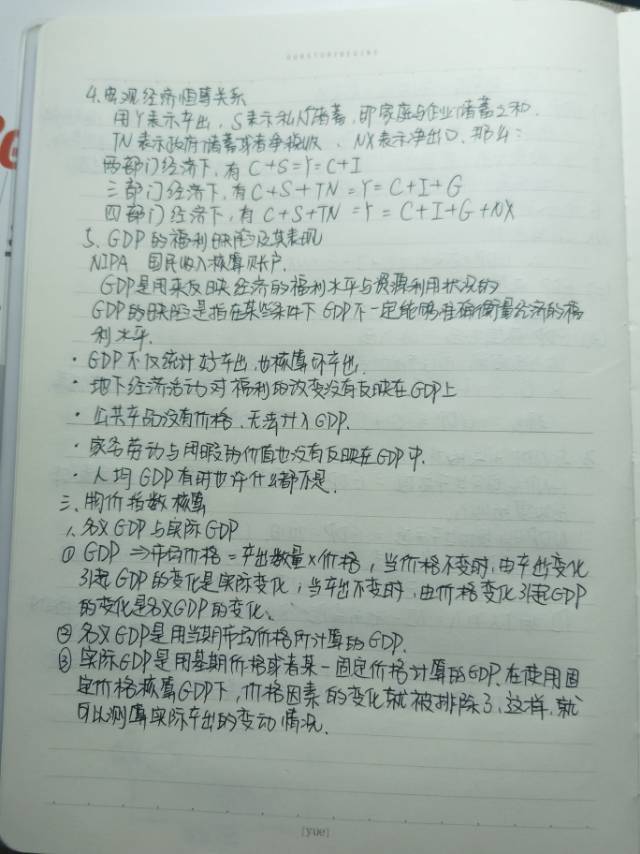 4.宏观经济恒等关系
用Y表示产出，S表示私人储蓄，即家庭与企业储蓄之和.
TN表示政府储蓄或者净税收、NX表示净出口，那么：
两部门经济下，有 C+S=Y=C+I
三部门经济下，有C+S+TN=Y=C+I+G
四部门经济下，有 C+S+TN=Y=C+I+G+NX
5、GDP的福利缺陷及其表现
NIPA 国民收入核算账户.
GDP是用来反映经济的福利水平与资源利用状况的
GDP的缺陷是指在某些条件下GDP不一定能够准确衡量经济的福
利水平.
·GDP不仅统计好产出，也核算坏产出.
·地下经济活动对福利的改变没有反映在GDP上
·公共产品没有价格，无法计入GDP.
·家务劳动与闲暇的价值也没有反映在GDP中.
·人均GDP有时也许什么都不是.
三、物价指数核算
1、名义GDP与实际GDP
① GDP ⇒市场价格=产出数量×价格，当价格不变时，由产出变化
引起GDP的变化是实际变化；当产出不变时，由价格变化引起GDP
的变化是名义GDP的变化、
② 名义GDP是用当期市场价格所计算的GDP.
③ 实际GDP是用基期价格或者某一固定价格计算的GDP.在使用固
定价格核算GDP下，价格因素的变化就被排除了、这样，就
可以测算实际产出的变动情况.
[yue]